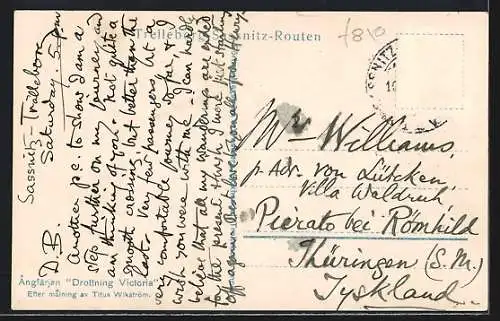 Trelleborg-Sassnitz-Routen
Sassnitz-Trälleborg
Saturday. 5 pm
D.B.
Another p.c. to show I am a
step further on my journey and
am thinking of you. Not quite a
smooth crossing, but better than the
last. Very few passengers, but a
very comfortable journey so far, & I
wish you were with me. I can hardly
believe that all my wanderings are ended
for the present, & wish I were just
off again.
Mrs Williams,
p. Adr. von Lütcken,
Villa Waldruh,
Pierato bei Römhild
Thüringen (S.M.)
Tyskland
Ångfärjan "Drottning Victoria".
Efter målning av Titus Wikström.